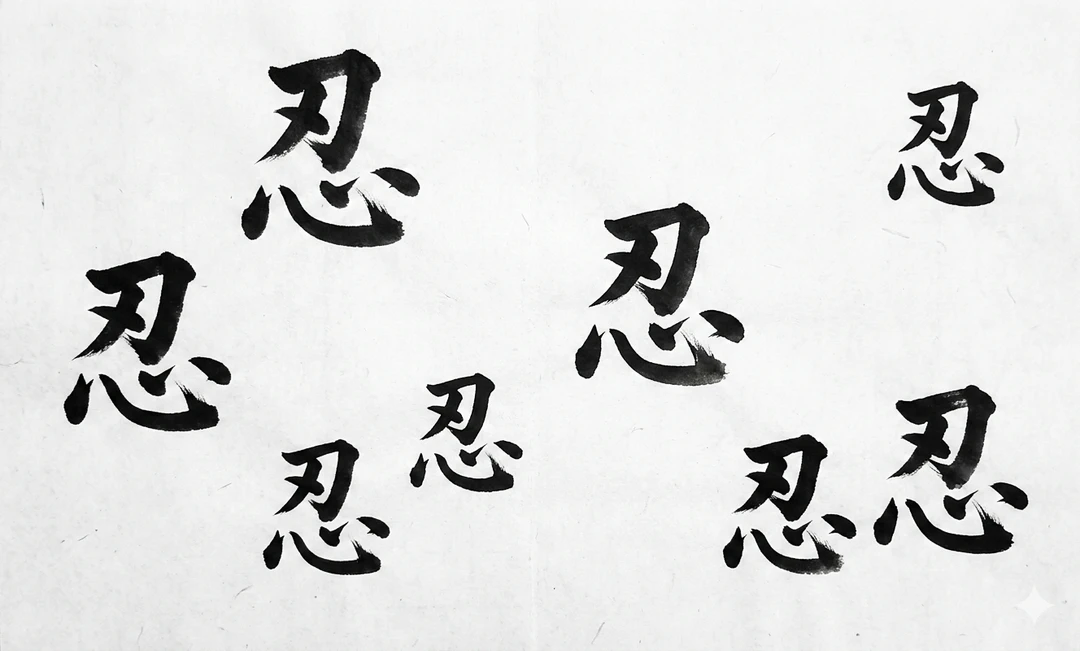 忍
忍
忍
忍
忍
忍
忍
忍